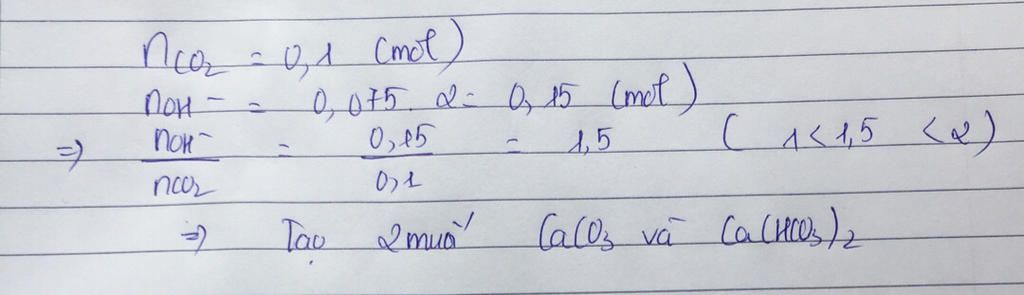 nCO₂ = 0,1 (mol)
nOH⁻ = 0,075. 2 = 0,15 (mol)
=> nOH⁻/nCO₂ = 0,15/0,1 = 1,5 ( 1 < 1,5 < 2 )
=> Tạo 2 muối CaCO₃ và Ca(HCO₃)₂